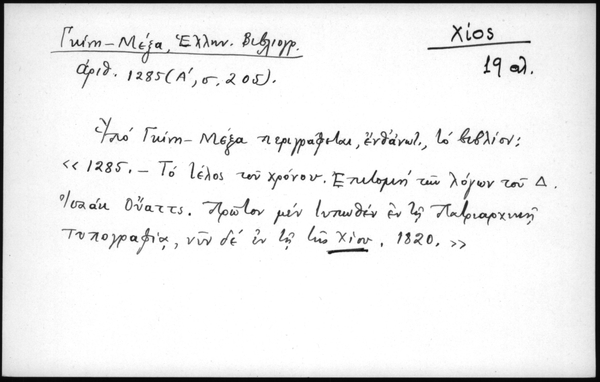 Γκίνη-Μέξα, Ἑλλην. Βιβλιογρ.
Χίος
ἀριθ. 1285 (Α', σ. 205).
19 αἰ.
Ὑπό Γκίνη-Μέξα περιγράφεται, ἐνθ' ἀνωτ., τό βιβλίον:
«1285.- Τό τέλος τοῦ χρόνου. Ἐπιτομή τῶν λόγων τοῦ Δ.
Ἰσαάκ Οὔαττς. Πρῶτον μέν τυπωθέν ἐν τῇ Πατριαρχικῇ
τυπογραφίᾳ, νῦν δέ ἐν τῇ τῆς Χίου. 1820.»